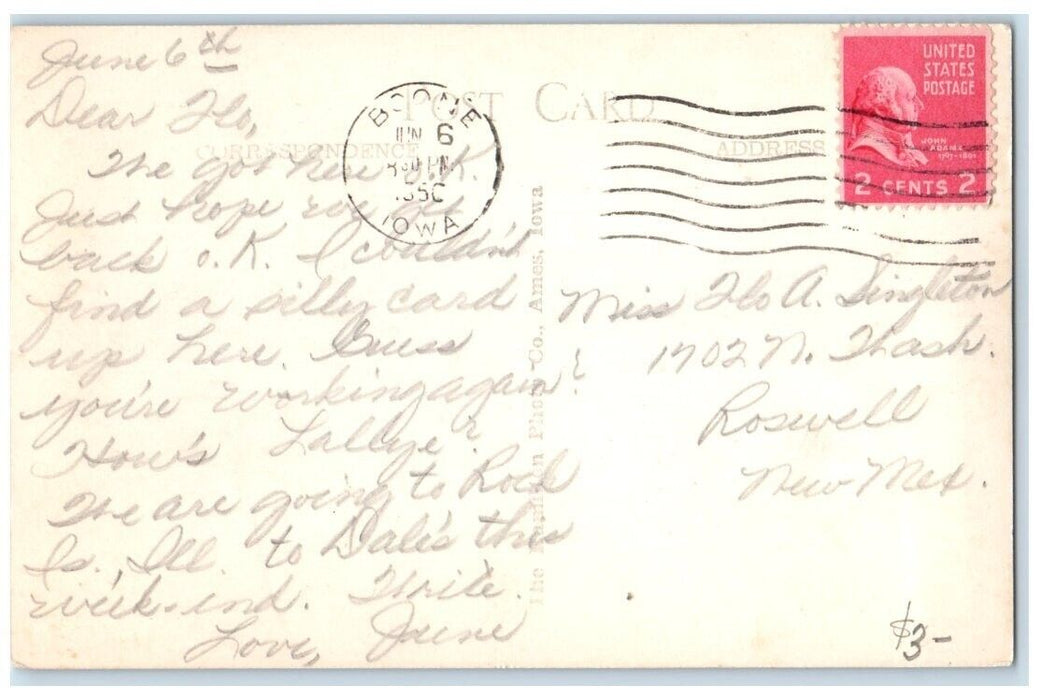 June 6th
Dear Flo,
We got here O.K.
Just hope we get
back o.K. I couldn't
find a silly card
up here. Guess
you're working again?
How's Lallye?
We are going to Rock
Is. Ill. to Dale's this
week-end. Write.
Love, June
POST CARD
CORRESPONDENCE
ADDRESS
BOONE
JUN 6
PM
IOWA
UNITED
STATES
POSTAGE
JOHN
ADAMS
1797-1801
2 CENTS 2
Photo Co., Ames, Iowa
Miss Flo A. Singleton
1702 N. Wash.
Roswell
New Mex.
$3-